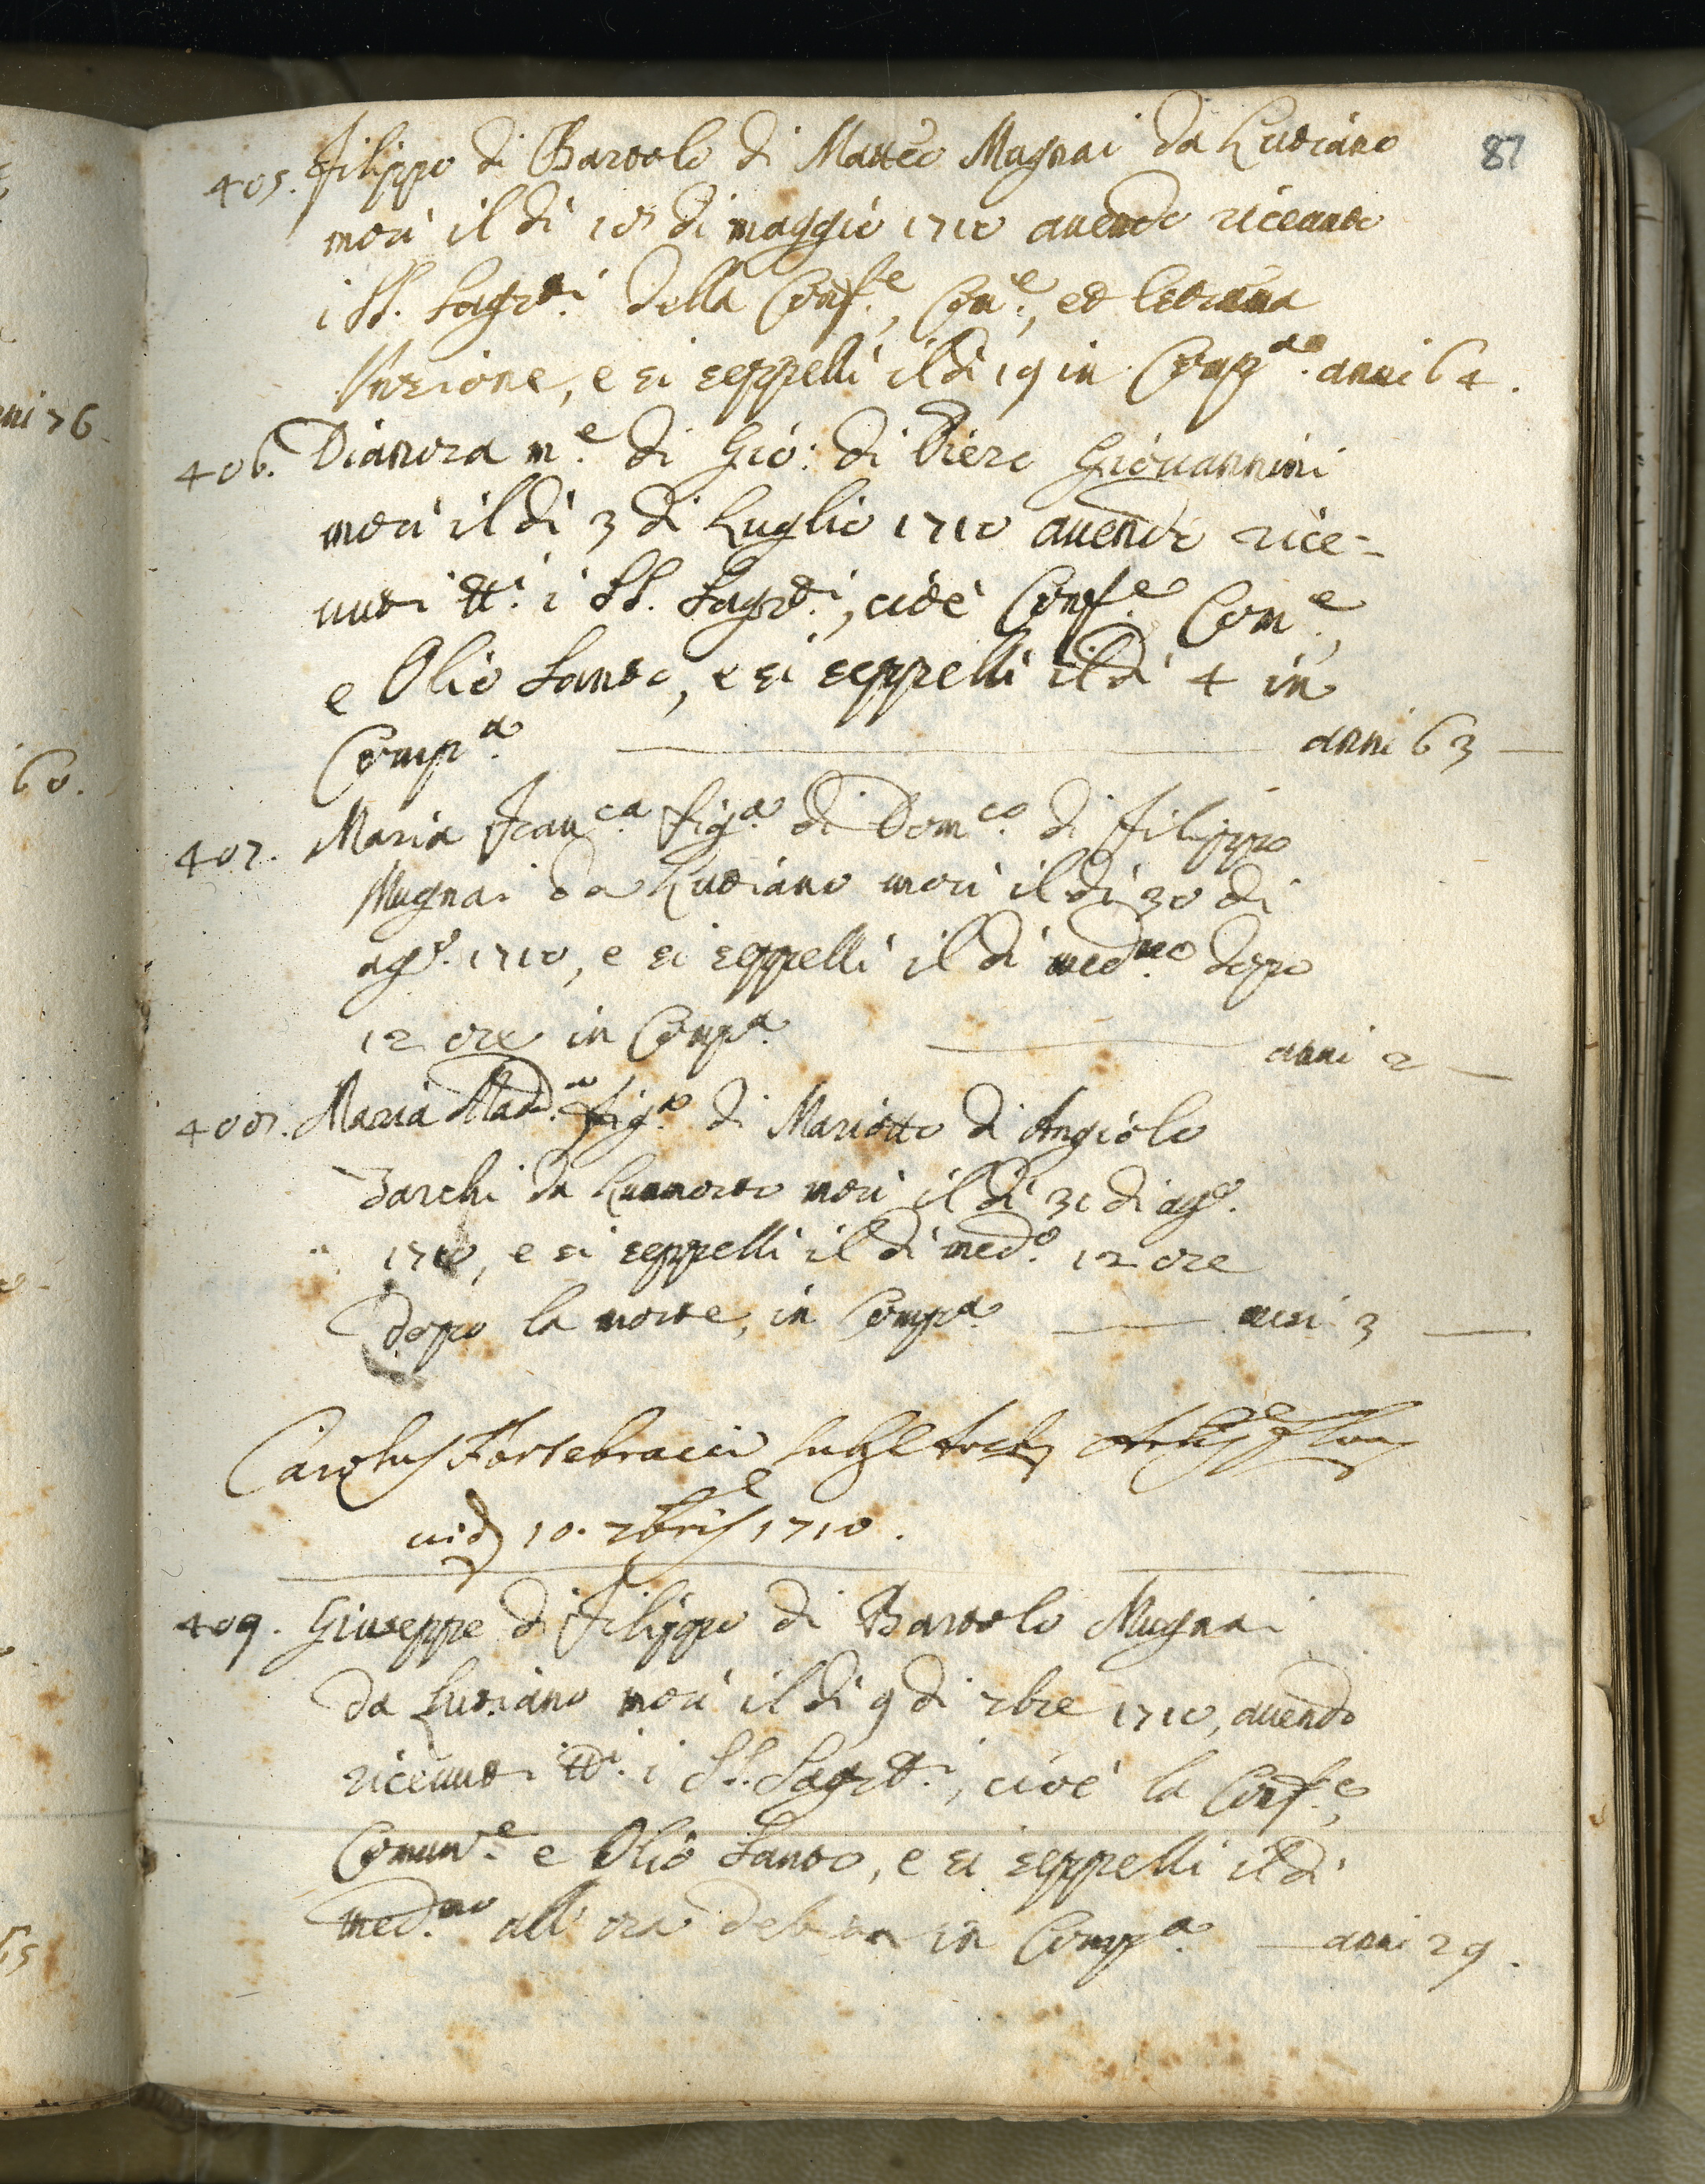 87
405. Filippo di Bartolo di Matteo Mugnai da Lutiano
morì il dì 18 di maggio 1710 auendo riceuuto
i SS. Sagr.ti della Conf.e, Com.e, ed Estrema
Unzione, e si seppellì il dì 19 in Comp.a anni 64.
406. Dianora m.e di Gio: di Piero Giouannini
morì il dì 3 di Luglio 1710 auendo rice-
uuti tt.i i SS. Sagr.ti, cioè Conf.e Com.e,
e Olio Santo, e si seppellì il dì 4 in
Comp.a anni 63
407. Maria Fran.ca fig.a di Dom.co di Filippo
Mugnai da Lutiano morì il dì 30 di
ag.o 1710, e si seppellì il dì med.mo dopo
12 ore in Comp.a anni 2
408. Maria Madd.a fig.a di Mariotto di Angiolo
Zarchi da morì il dì 31 di ag.o
1710, e si seppellì il dì med.o 12 ore
dopo la morte, in Comp.a mesi 3
Carolus Fortebracci
uid 10. 7bris 1710.
409. Giuseppe di Filippo di Bartolo Mugnai
da Lutiano morì il dì 9 di 7bre 1710, auendo
riceuuti tt.i i SS. Sagr.ti, cioè la Conf.e,
Comun.e e Olio Santo, e si seppellì il dì
med.mo all' ora in Comp.a anni 29.